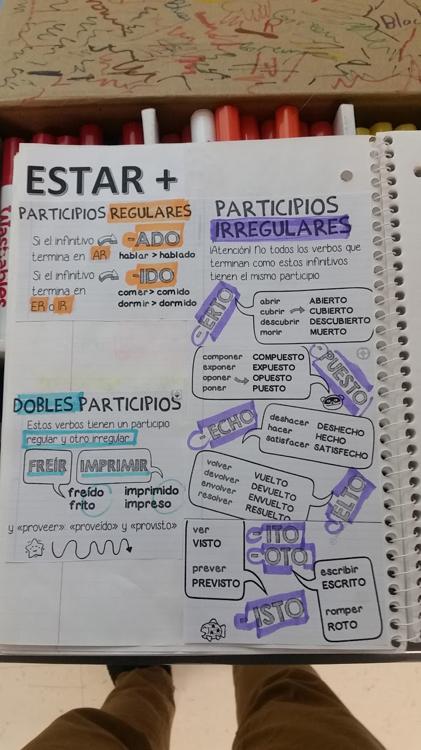 Bloc
Washables
ESTAR +
PARTICIPIOS REGULARES
Si el infinitivo
termina en AR
-ADO
hablar > hablado
Si el infinitivo
termina en
ER o IR
-IDO
comer > comido
dormir > dormido
DOBLES PARTICIPIOS
Estos verbos tienen un participio
regular y otro irregular.
FREÍR
IMPRIMIR
freído
frito
imprimido
impreso
y «proveer»: «proveído» y «provisto»
PARTICIPIOS
IRREGULARES
¡Atención! No todos los verbos que
terminan como estos infinitivos
tienen el mismo participio
-ERTO
abrir ABIERTO
cubrir CUBIERTO
descubrir DESCUBIERTO
morir MUERTO
componer COMPUESTO
exponer EXPUESTO
oponer OPUESTO
poner PUESTO
PUESTO
-ECHO
deshacer DESHECHO
hacer HECHO
satisfacer SATISFECHO
volver VUELTO
devolver DEVUELTO
envolver ENVUELTO
resolver RESUELTO
ELTO
ver
VISTO
prever
PREVISTO
-ITO
-OTO
escribir
ESCRITO
romper
ROTO
ISTO